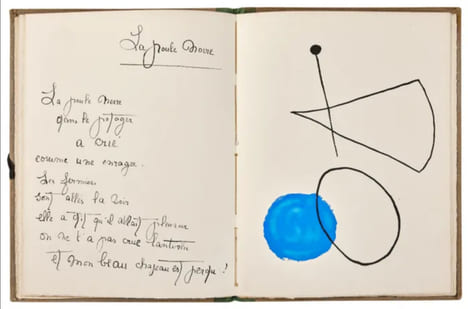 La poule Noire
La poule Noire
dans le potager
a crié
comme une enragée.
Les fermiers
sont allés la voir
elle a dit qu'il allait pleuvoir
on ne l'a pas crue
et mon beau chapeau est perdu !